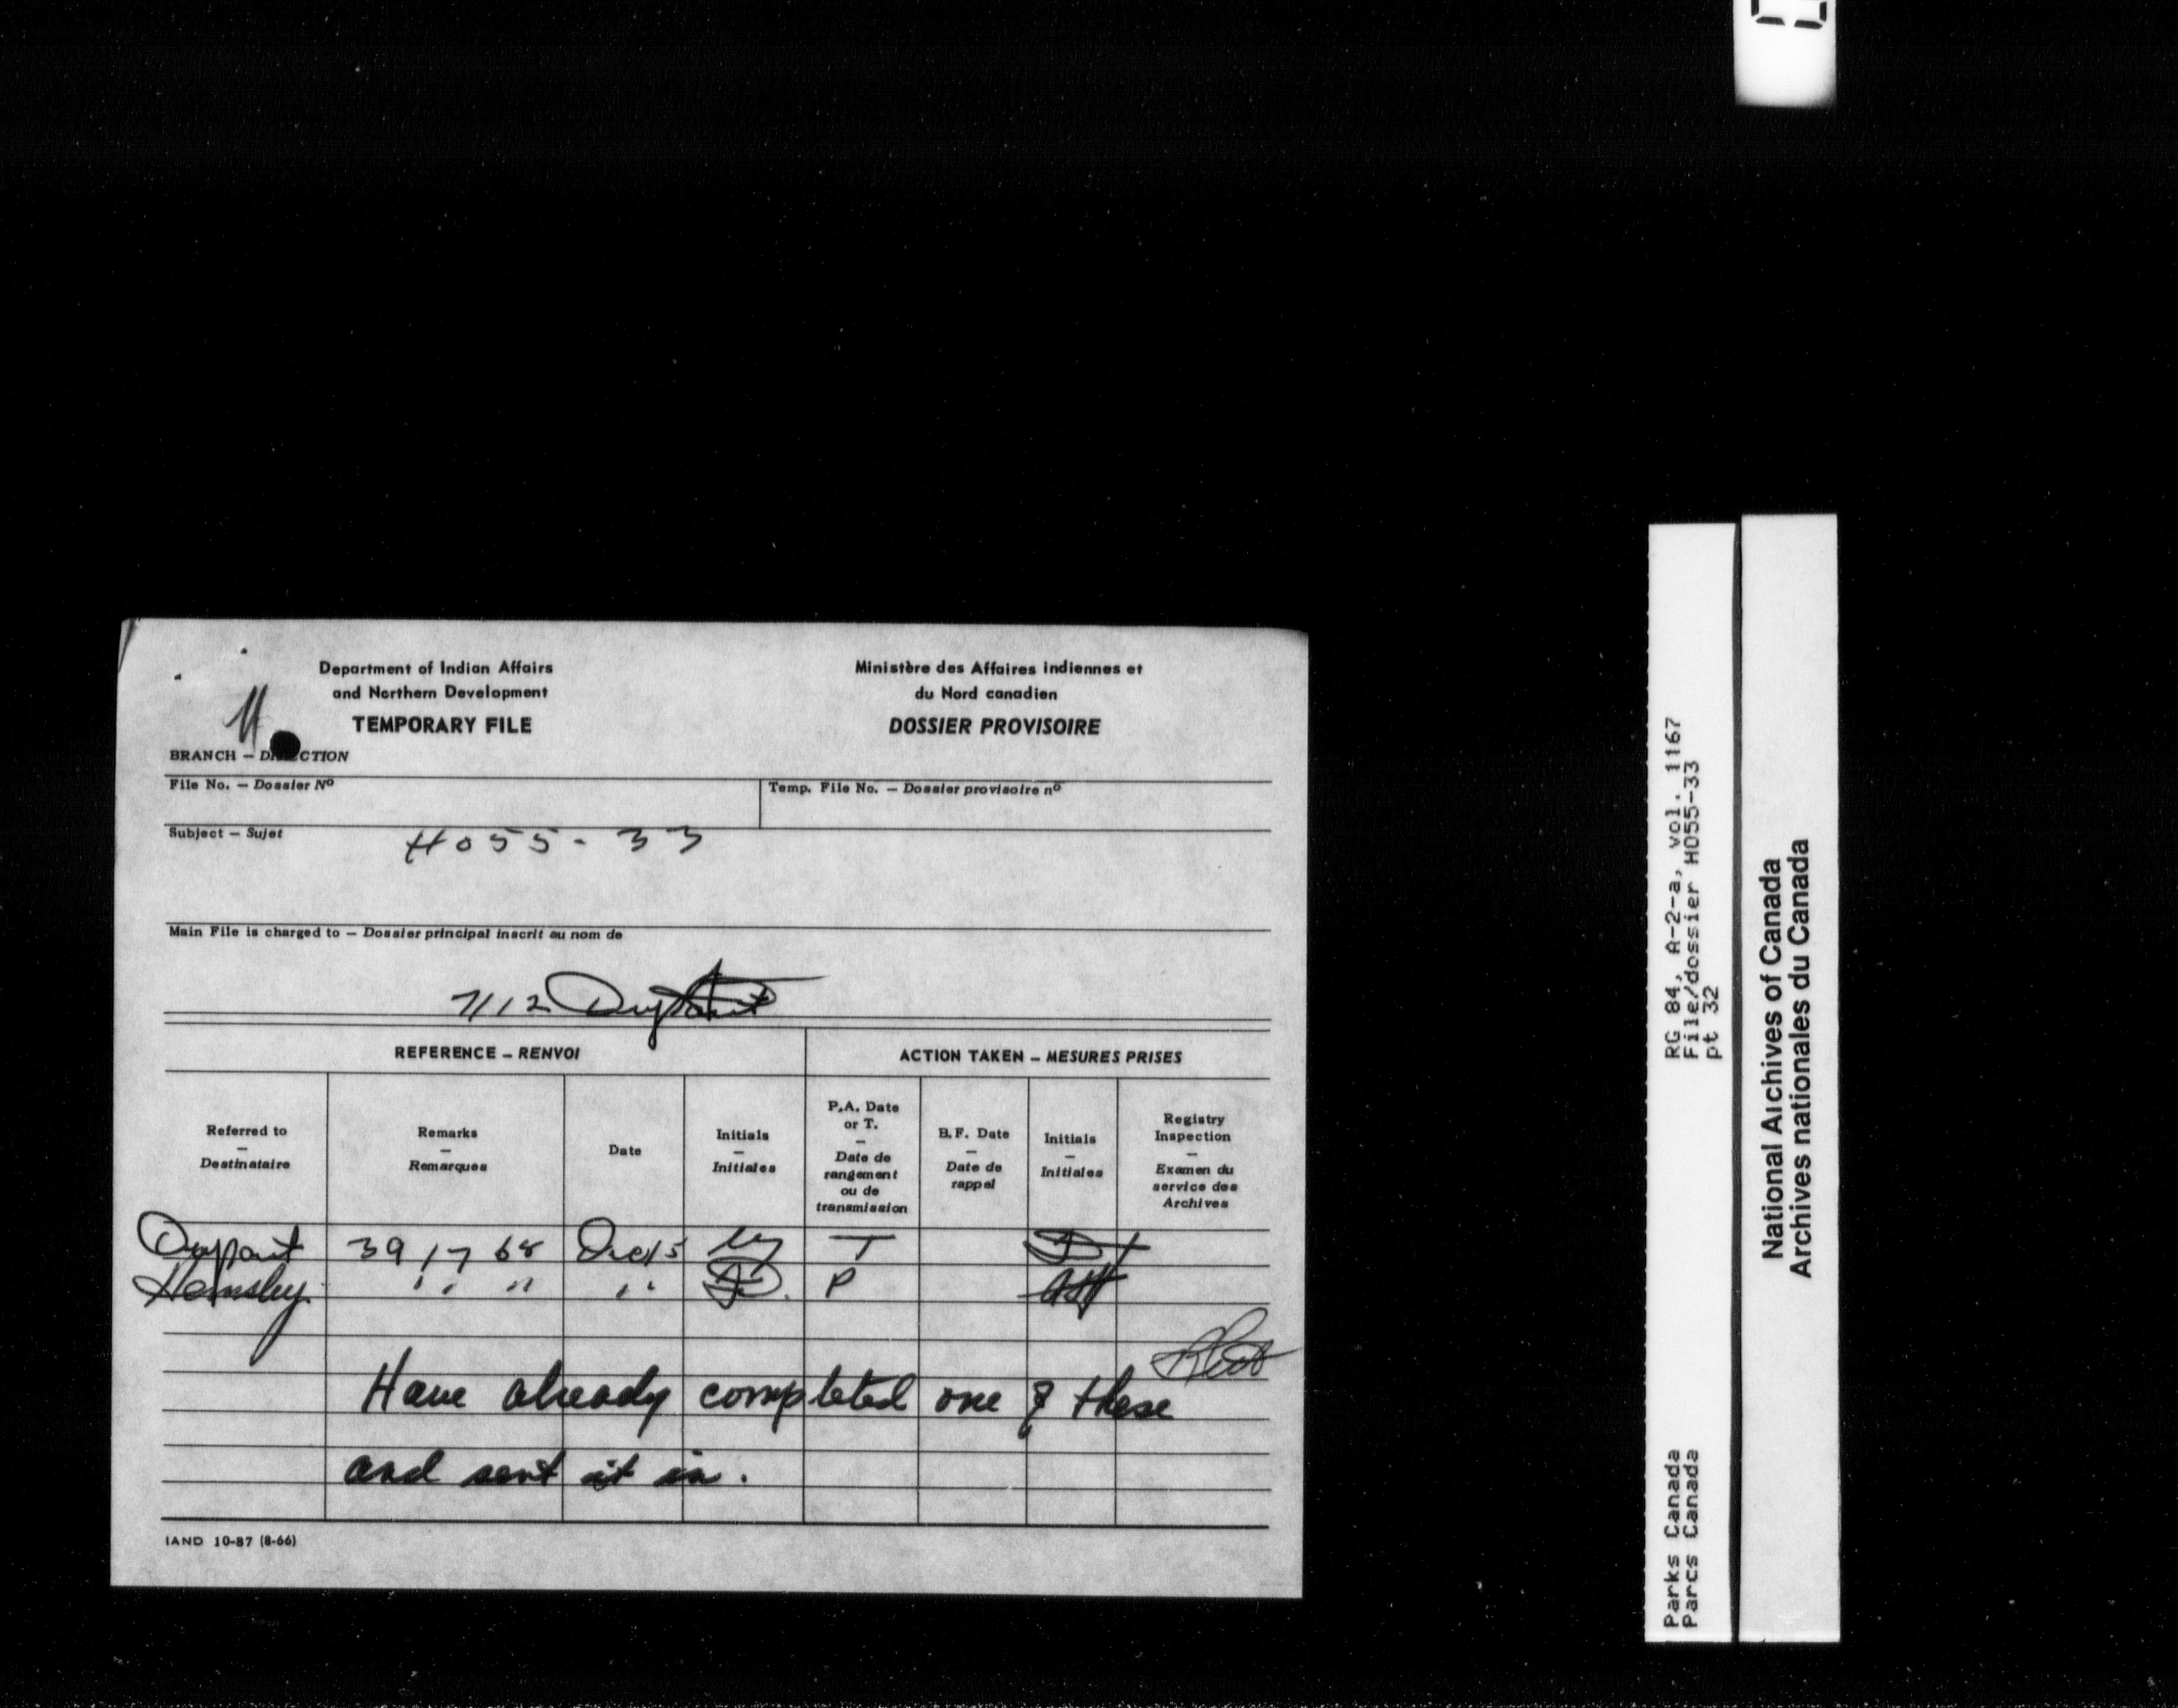 Department of Indian Affairs
and Northern Development
TEMPORARY FILE
Ministère des Affaires indiennes et
du Nord canadien
DOSSIER PROVISOIRE
BRANCH – DIRECTION
File No. – Dossier Nº
Temp. File No. – Dossier provisoire nº
Subject – Sujet
H055-33
Main File is charged to – Dossier principal inscrit au nom de
7/12
REFERENCE – RENVOI
ACTION TAKEN – MESURES PRISES
Referred to – Destinataire
Remarks – Remarques
Date
Initials – Initiales
P.A. Date or T. – Date de rangement ou de transmission
B.F. Date – Date de rappel
Initials – Initiales
Registry Inspection – Examen du service des Archives
39 17 68 Dec/5 T
Hemsley " " " P
Have already completed one of these
and sent it in.
IAND 10-87 (8-66)
RG 84, A-2-a, vol. 1167
File/dossier H055-33
pt 32
Parks Canada
Parcs Canada
National Archives of Canada
Archives nationales du Canada